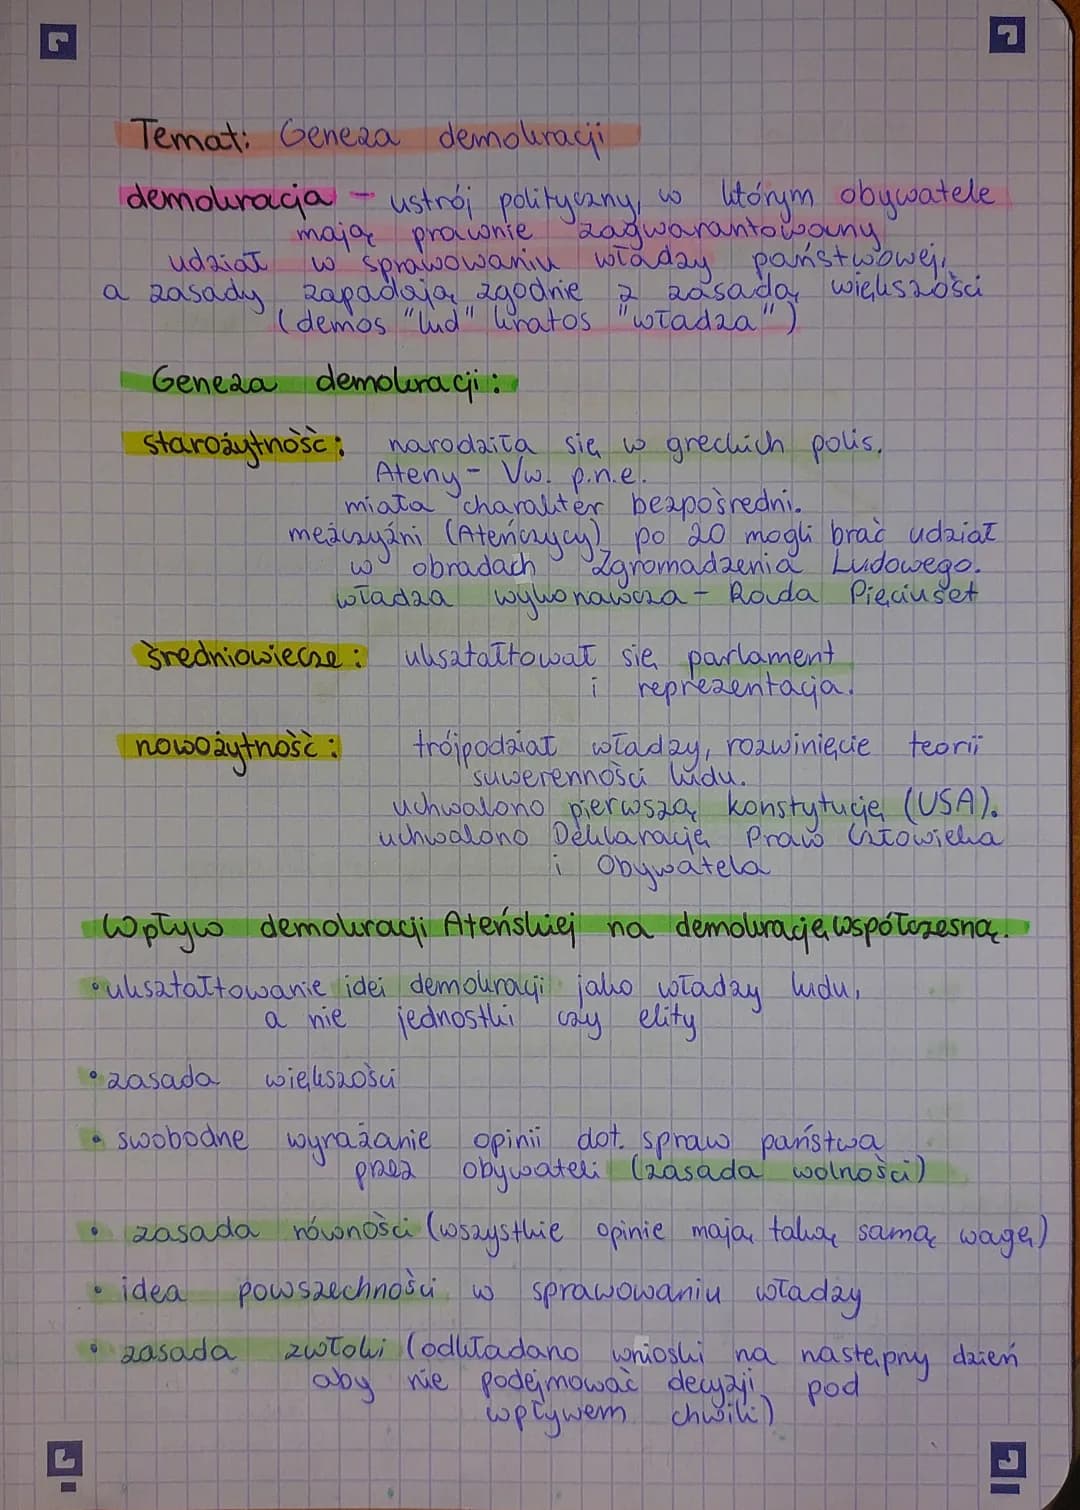 Temat: Geneza demokracji
demokracja - ustrój polityczny, w którym obywatele
mają prawnie zagwarantowany
udział w sprawowaniu władzy państwowej,
a zasady zapadają zgodnie z zasadą większości
(demos "lud" kratos "władza")
Geneza demokracji:
starożytność: narodziła się w greckich polis.
Ateny - Vw. p.n.e.
miała charakter bezpośredni.
meżczyźni (Ateńczycy) po 20 mogli brać udział
w obradach Zgromadzenia Ludowego.
władza wykonawcza - Rada Pięciuset
średniowiecze: ukształtował się parlament
i reprezentacja.
nowożytność: trójpodział władzy, rozwinięcie teorii
suwerenności ludu.
uchwalono pierwszą konstytucję (USA).
uchwalono Deklarację Praw Człowieka
i Obywatela
Wpływ demokracji Ateńskiej na demokrację współczesną.
• ukształtowanie idei demokracji jako władzy ludu,
a nie jednostki czy elity
• zasada większości
• swobodne wyrażanie opinii dot. spraw państwa
przez obywateli (zasada wolności)
• zasada równości (wszystkie opinie mają taką samą wagę)
• idea powszechności w sprawowaniu władzy
• zasada zwłoki (odkładano wnioski na następny dzień
aby nie podejmować decyzji pod
wpływem chwili)